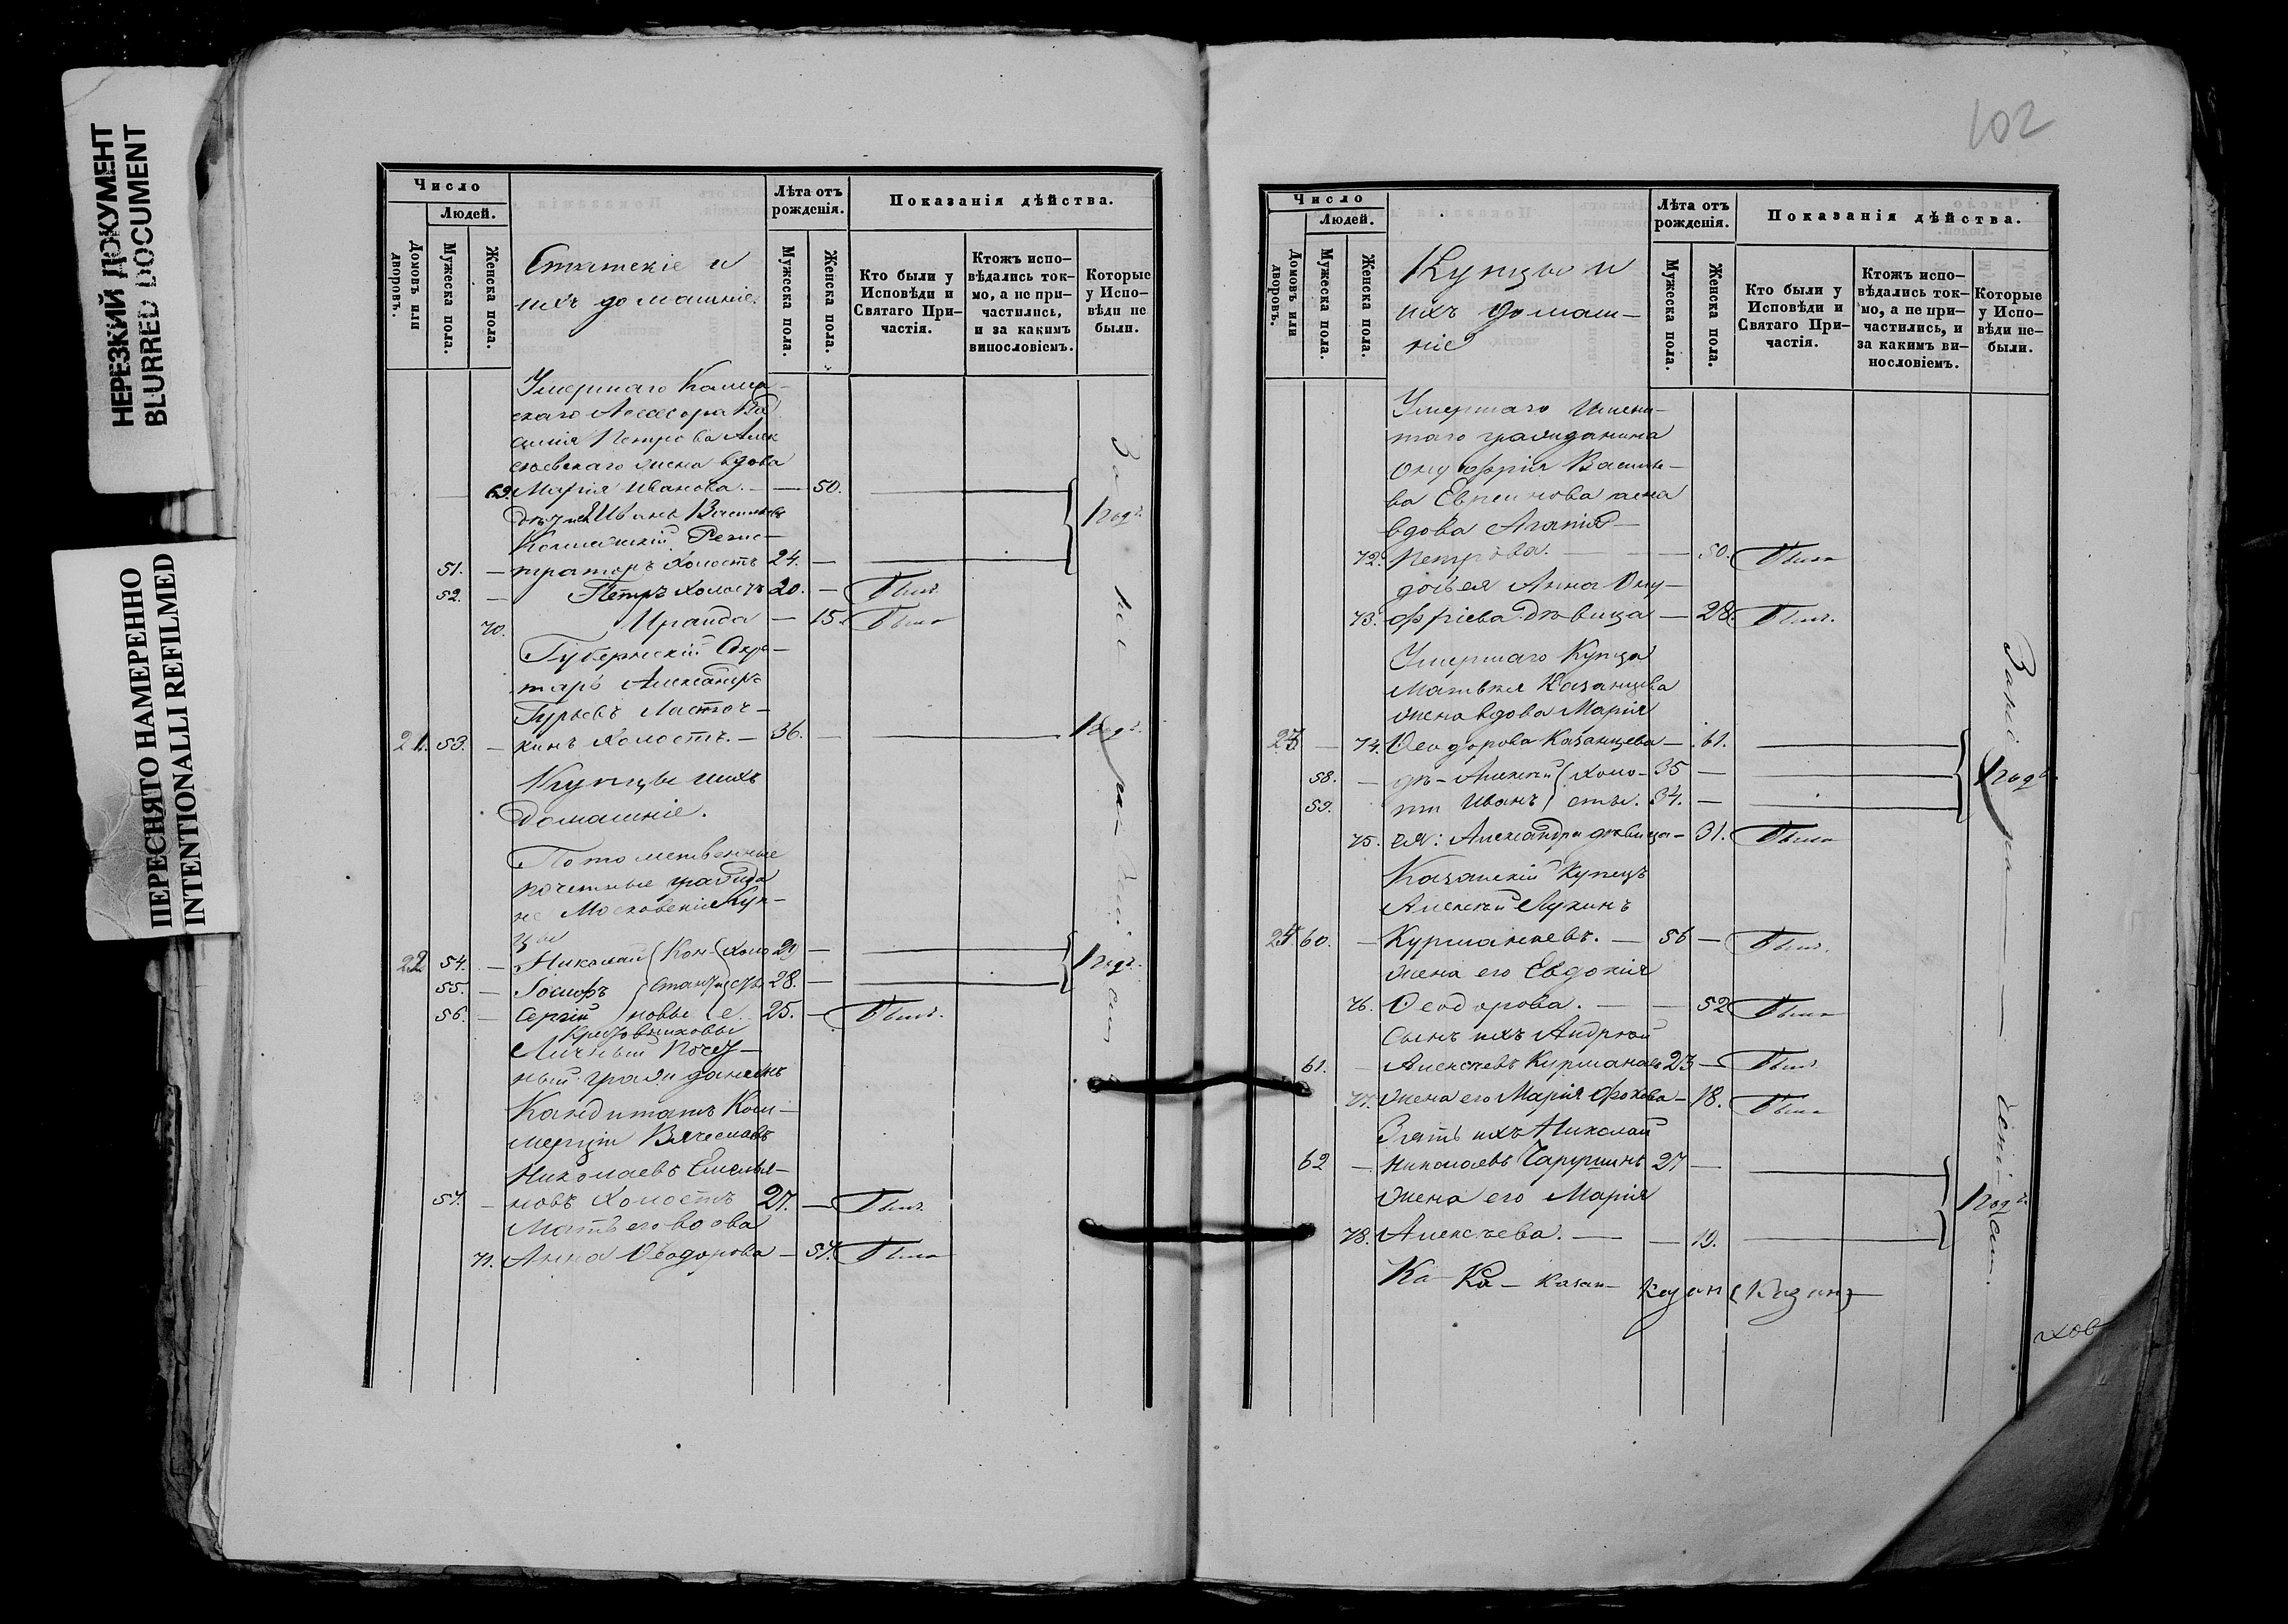 НЕРЕЗКИЙ ДОКУМЕНТ
BLURRED DOCUMENT
ПЕРЕСНЯТО НАМЕРЕННО
INTENTIONALLI REFILMED
Число
Людей.
Домовъ или дворовъ.
Мужеска пола.
Женска пола.
Статскіе и
ихъ домашніе.
Лѣта отъ
рожденія.
Мужеска пола.
Женска пола.
Показанія дѣйства.
Кто были у
Исповѣди и
Святаго При-
частія.
Ктожъ испо-
вѣдались ток-
мо, а не при-
частились,
и за какимъ
винословіемъ.
Которые
у Испо-
вѣди не
были.
Умершаго Коллеж-
скаго Ассесора Ва
силія Петрова Алек
сѣевскаго жена вдова
69. Марія Иванова. — 50.
дѣти Иванъ Васильевъ
Коллежскій Регис-
51. — траторъ холостъ 24. —
1 годъ
52. — Петръ холостъ 20. — Былъ
70. Ираида — 15. Была
Губернскій Секре-
тарь Александръ
Гурьевъ Ласточ-
21. 53. — кинъ холостъ. — 36. — 1 годъ.
Купцы и ихъ
домашніе.
Потомственные
почетные гражда
не Московскіе Куп-
цы
22 54. — Николай Кон- холо 29 —
55. — Іосифъ стантис сты 28. —
1 годъ.
56. — Сергій новы е 25. — Былъ.
Крестовниковы
Личный Почет-
ный гражданинъ
Кандитатъ Ком-
мерціи Вячеславъ
Николаевъ Емелья-
57. — новъ холостъ 27. — Былъ.
Мать его вдова
71. Анна Ѳеодорова — 57. Была
102
Число
Людей.
Домовъ или дворовъ.
Мужеска пола.
Женска пола.
Купцы и
ихъ домаш-
ніе
Лѣта отъ
рожденія.
Мужеска пола.
Женска пола.
Показанія дѣйства.
Кто были у
Исповѣди и
Святаго При-
частія.
Ктожъ испо-
вѣдались ток-
мо, а не при-
частились, и
за какимъ ви-
нословіемъ.
Которые
у Испо-
вѣди не-
были.
Умершаго Имени-
таго гражданина
Онуфрія Василье-
ва Евреинова жена
вдова Агапія
72. Петрова. — — 50. Была
дочь ея Анна Ону-
73. фріева дѣвица — 28. Была.
Умершаго Купца
Матвѣя Казанцева
жена вдова Марія
23 — 74. Ѳеодорова Казанцева — 61.
58. — дѣ- Алексѣй холо- 35 —
59. — ти Иванъ сты. 34. —
1 годъ
75. ея: Александра дѣвица — 31. Была
Казанскій Купецъ
Алексѣй Лукинъ
24 60. — Курманаевъ. — 56 — Былъ.
жена его Евдокія
76. Ѳеодорова. — — 52 Была
Сынъ ихъ Андрей
61. — Алексѣевъ Курманаевъ 23 — Былъ
77. жена его Марія — 18. Была
Зять ихъ Николай
62 — Николаевъ Чарушинъ 27 —
жена его Марія
78. Алексѣева. — — 19.
1 годъ
Ка- Ка- Казан- Казан (Казан)